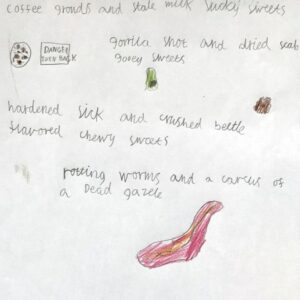 coffee grounds and stale milk sucky sweets
DANGER
TURN BACK
gorilla snot and dried scab
gooey sweets
hardened sick and crushed bettle
flavored chewy sweets
rotting worms and a carcus of
a Dead gazele